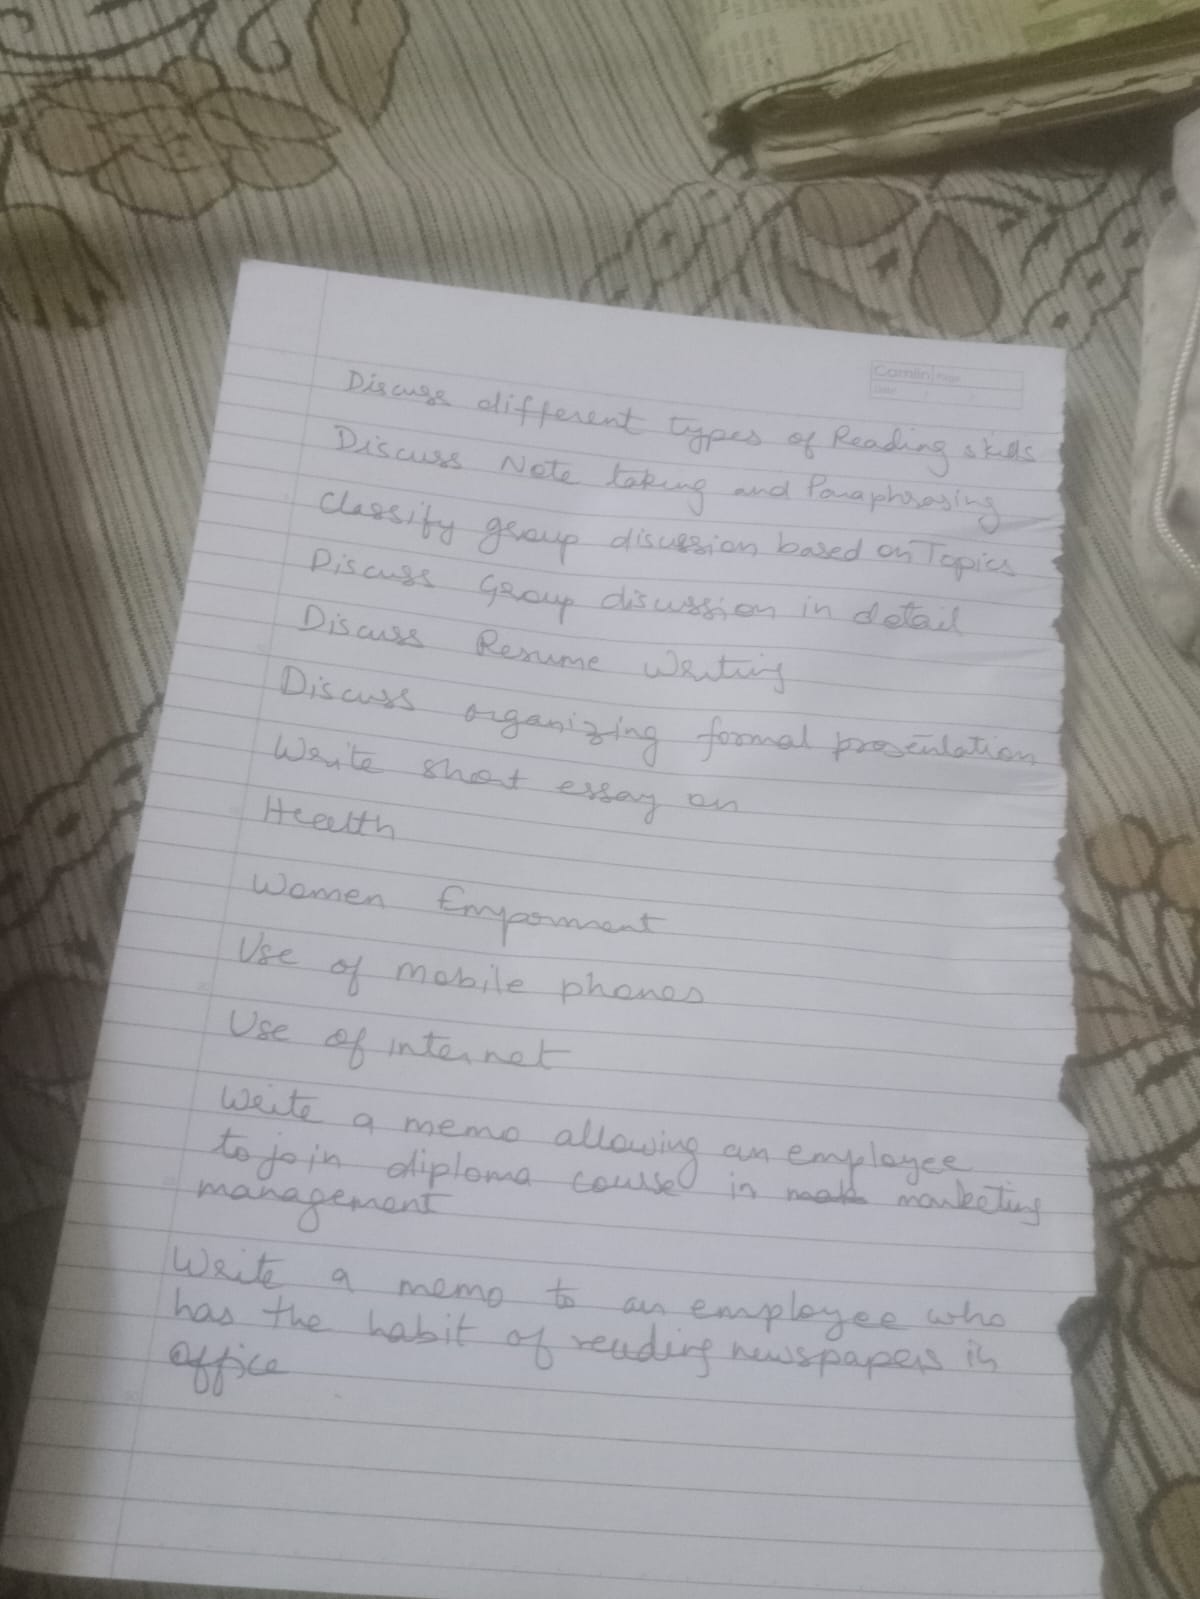 Camlin Page
Date
Discuss different types of Reading skills
Discuss Note taking and Paraphrasing
Classify group discussion based on Topics
Discuss Group discussion in detail
Discuss Resume writing
Discuss organizing formal presentation
Write short essay on
Health
Women Emporment
Use of mobile phones
Use of internet
Write a memo allowing an employee
to join diploma course in marketing
management
Write a memo to an employee who
has the habit of reading newspapers in
office